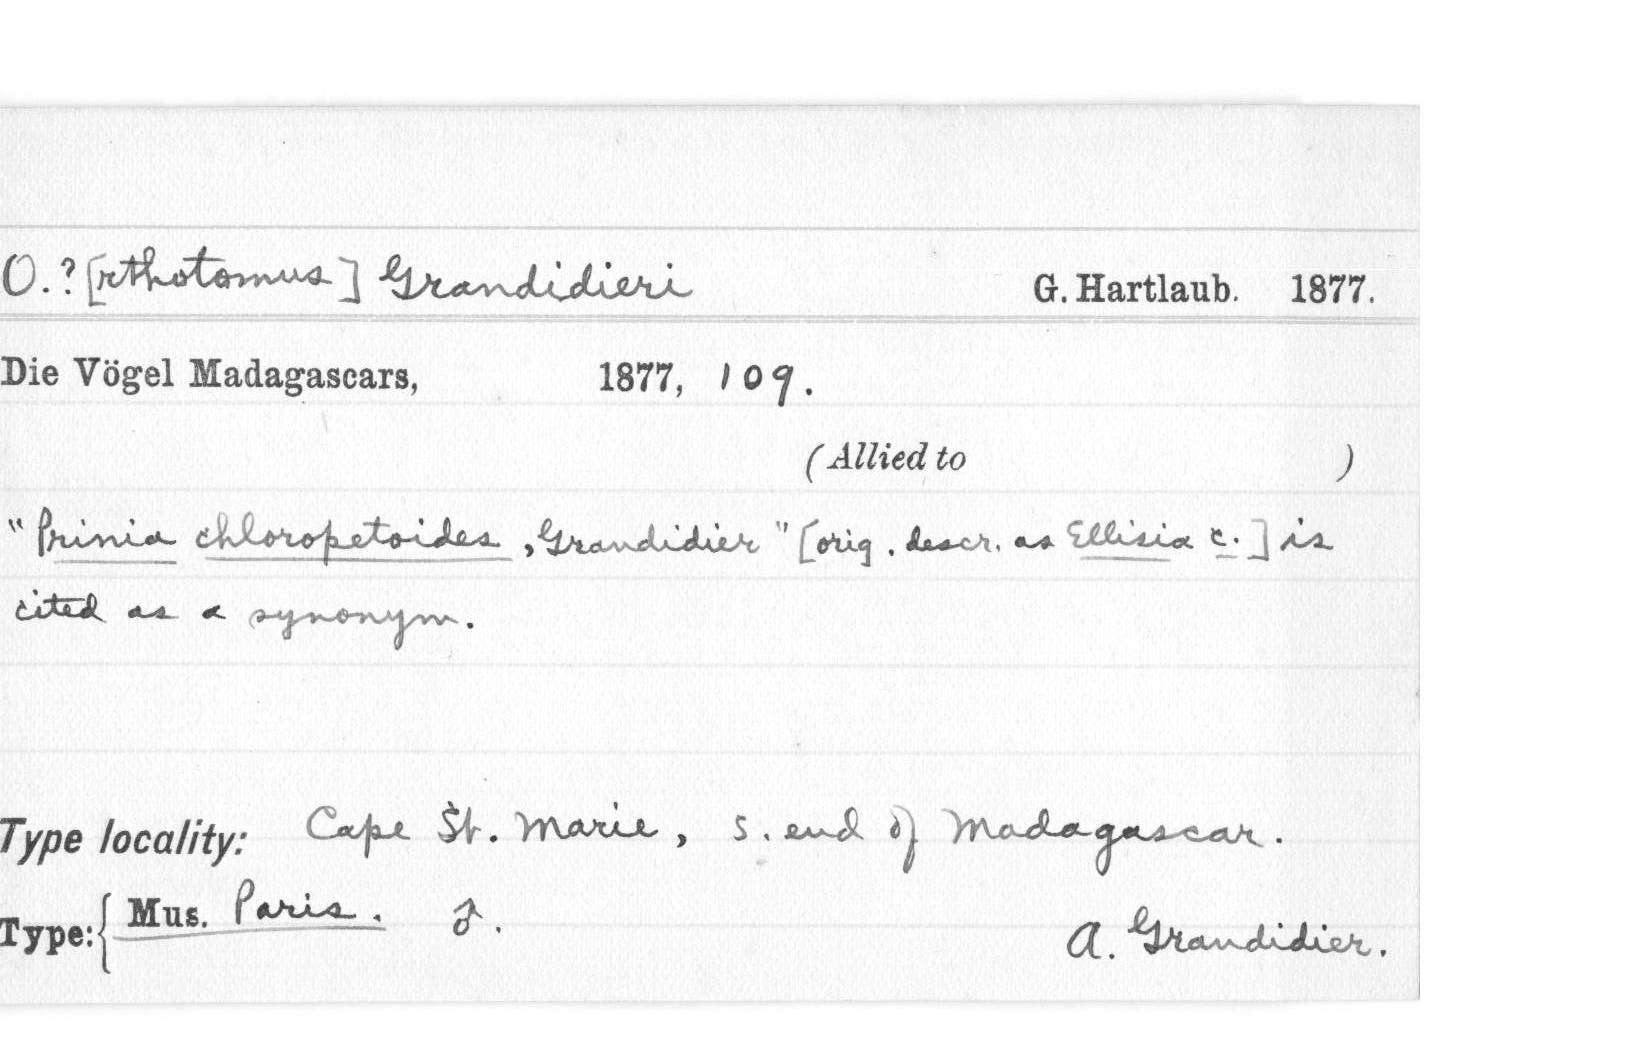 O.? [rthotomus] Grandidieri G. Hartlaub. 1877.
Die Vögel Madagascars, 1877, 109.
(Allied to )
"Prinia chloropetoides, Grandidier" [orig. descr. as Ellisia c.] is
cited as a synonym.
Type locality: Cape St. Marie, s. end of Madagascar.
Type: { Mus. Paris. ♂.
A. Grandidier.